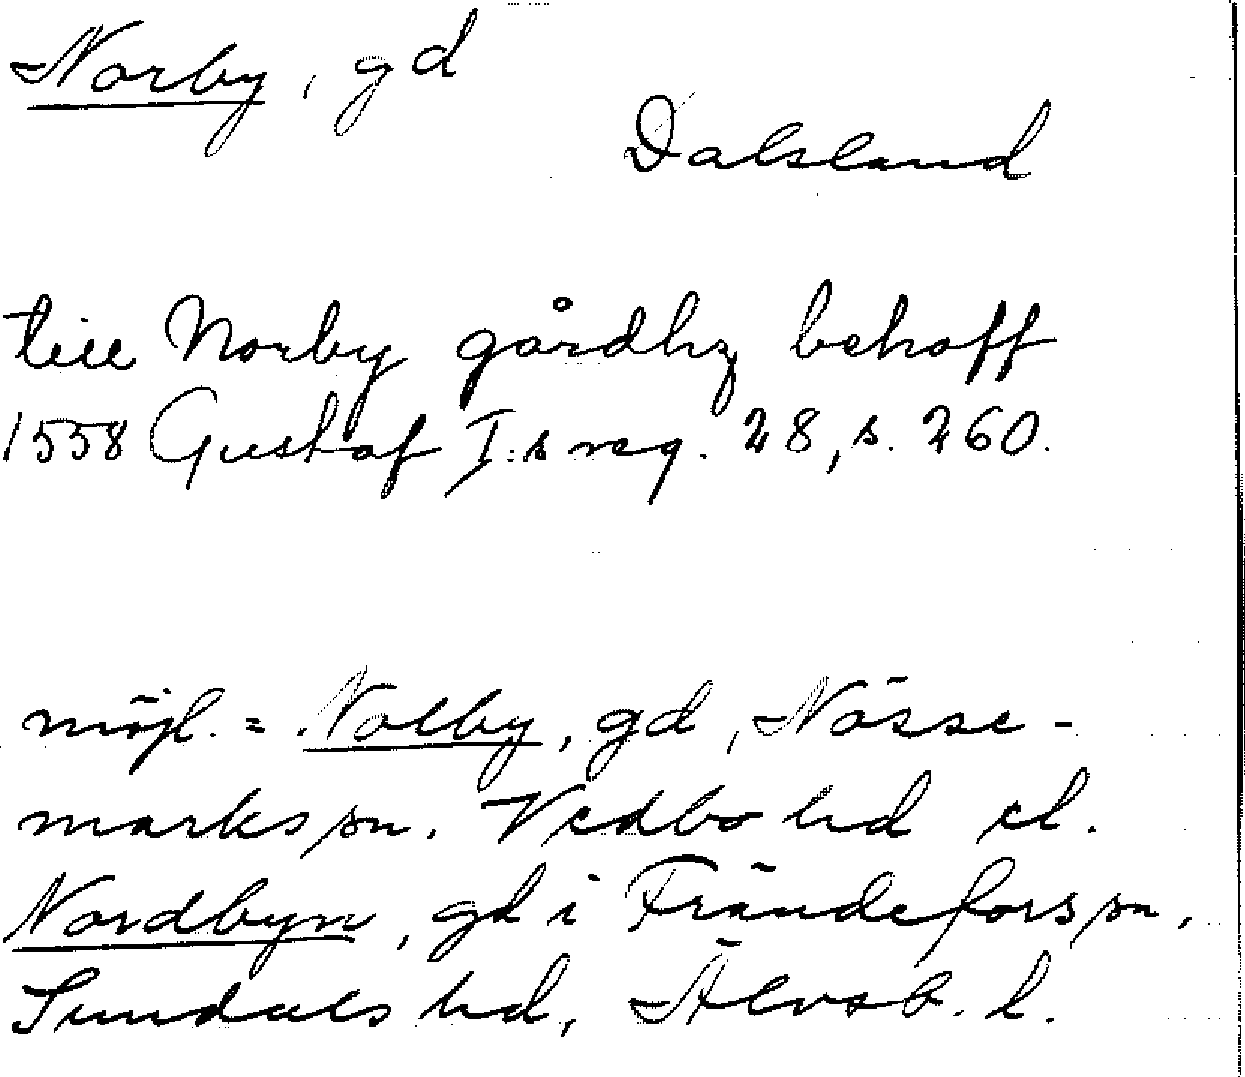 Norby, gd
Dalsland
till Norby gårdhz behoff
1558 Gustaf I:s reg. 28, s. 260.
möjl. = Nolby, gd, Nösse-
marks sn. Vedbo hd el.
Nordbyn, gd i Frändefors sn,
Sundals hd, Älvsb. l.